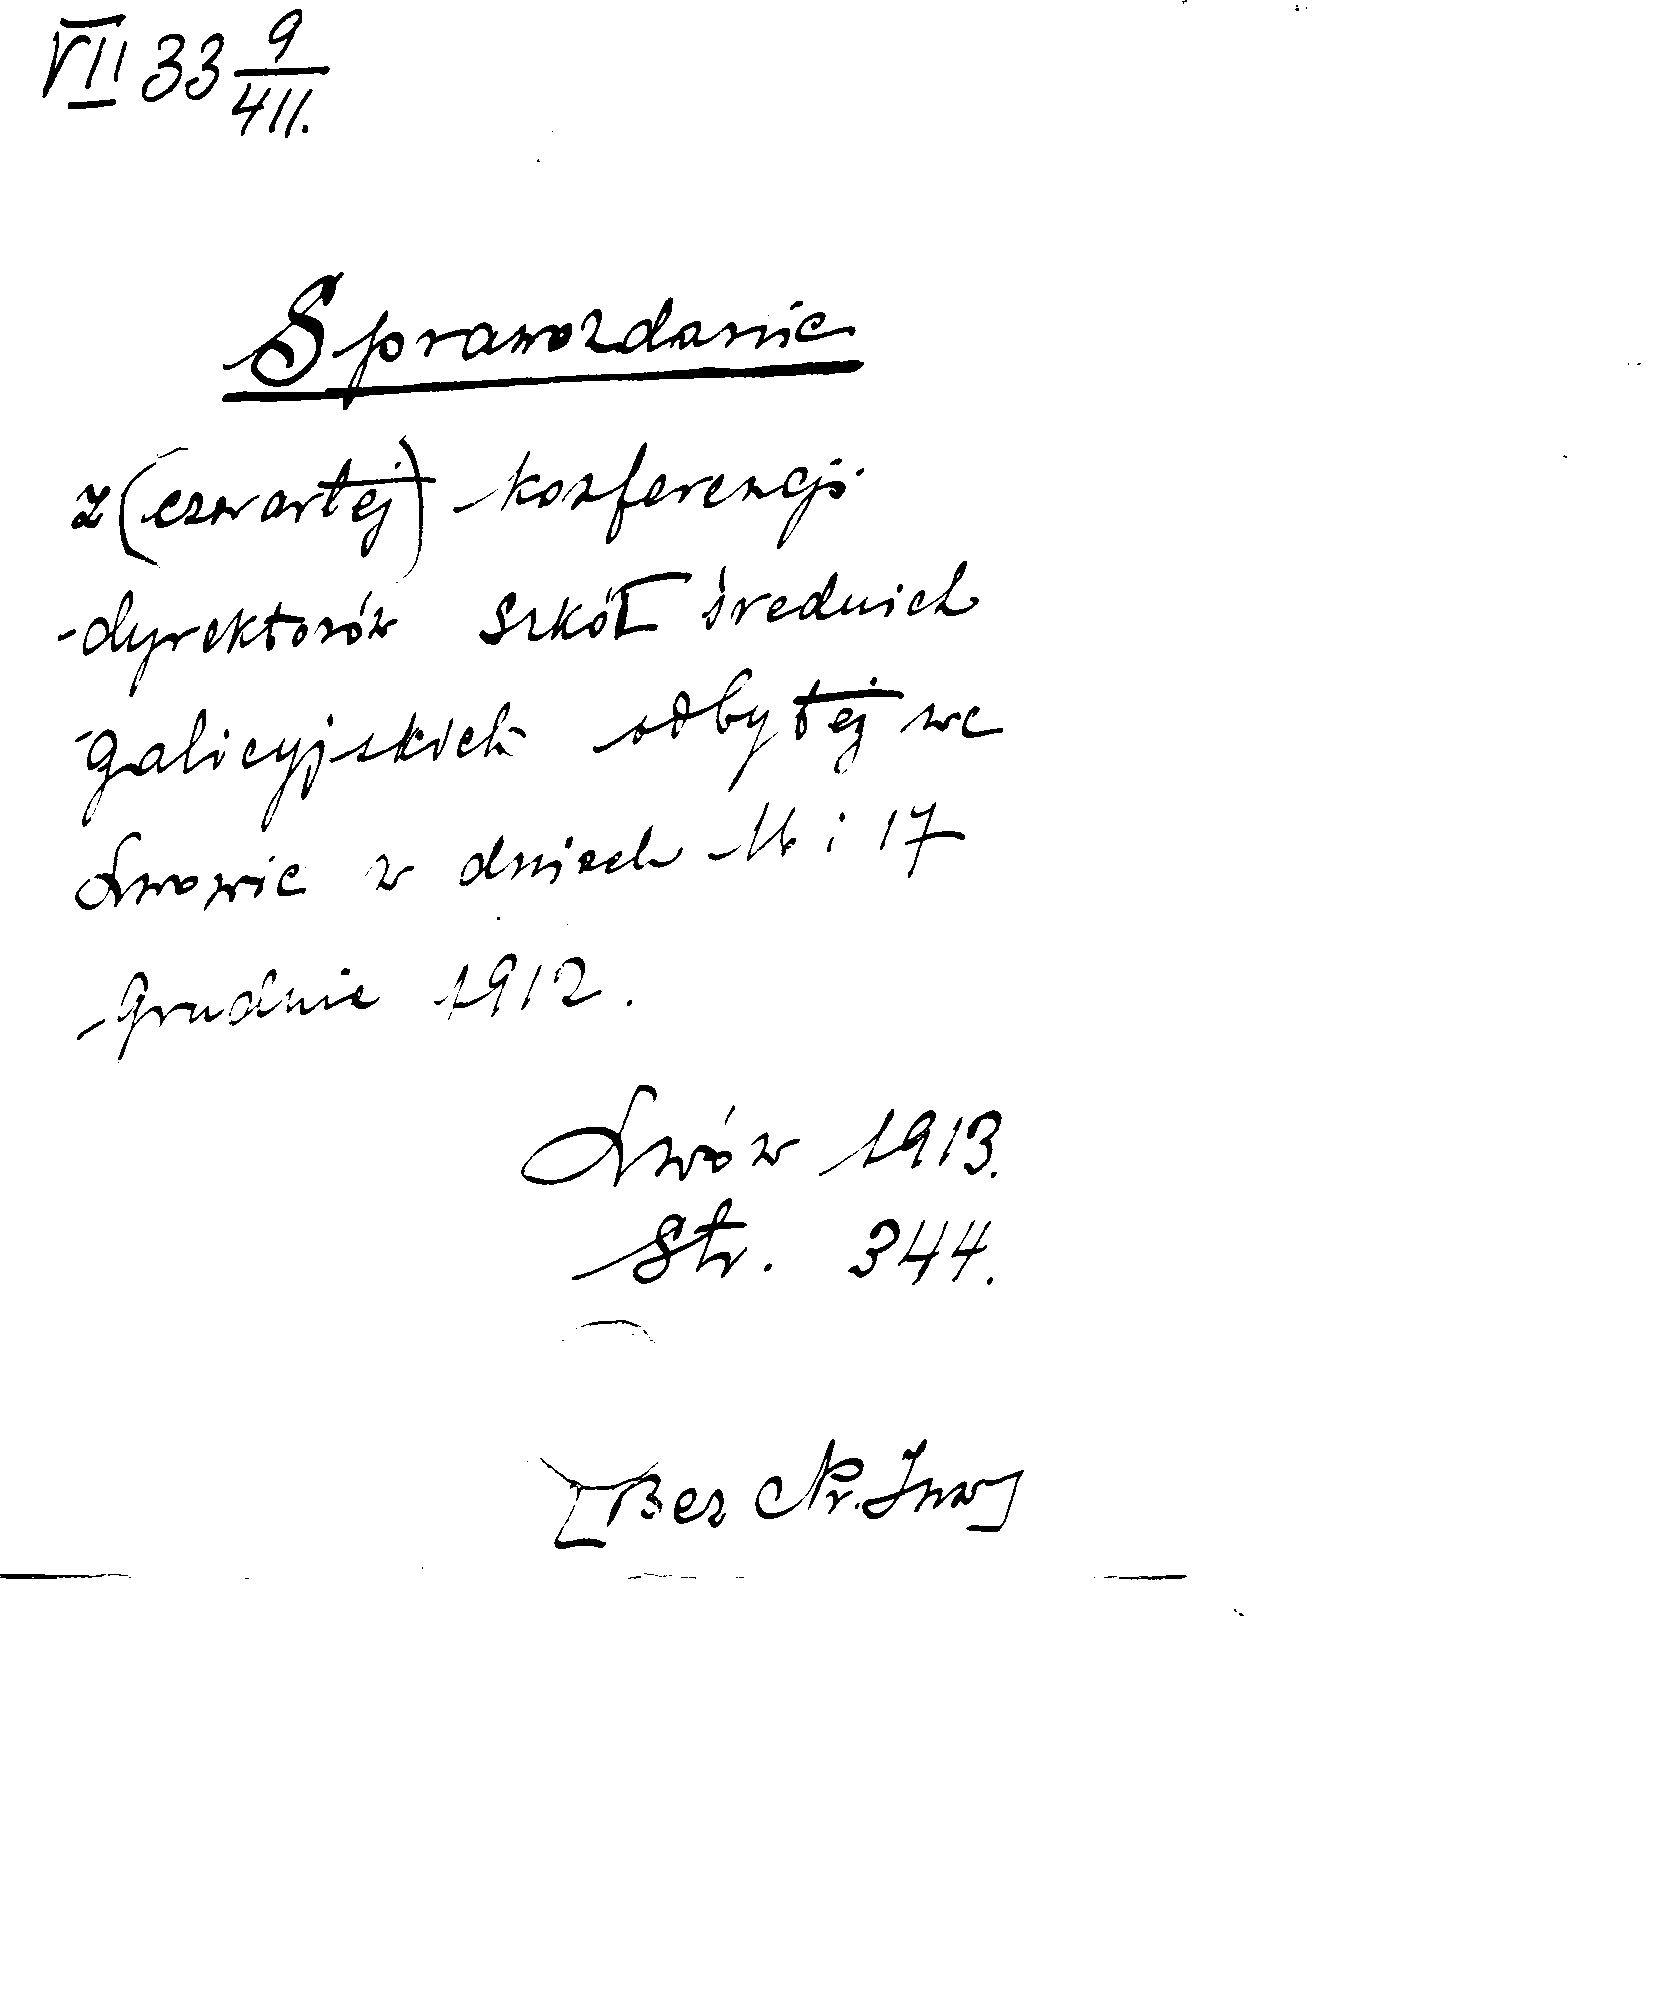 VII 33 9/411.
Sprawozdanie
z (czwartej) konferencji
dyrektorów szkół średnich
galicyjskich odbytej we
Lwowie w dniach 16 i 17
grudnie 1912.
Lwów 1913.
Str. 344.
[Bez Nr. Inw]